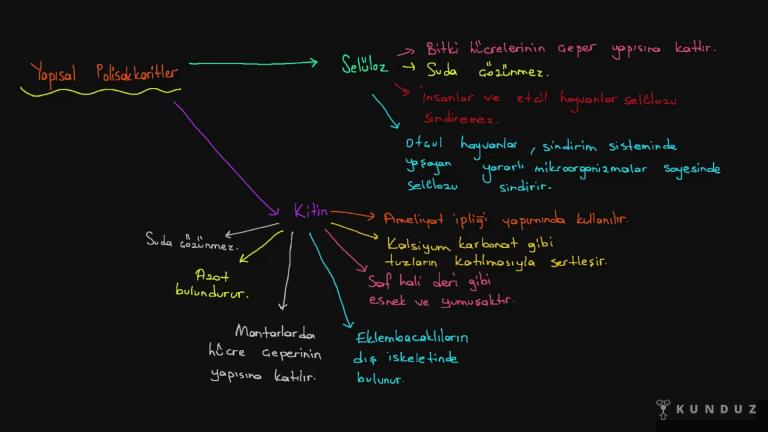 Yapısal Polisakkaritler
Selüloz
Bitki hücrelerinin çeper yapısına katılır.
Suda çözünmez.
İnsanlar ve etçil hayvanlar selülozu
sindiremez.
Otçul hayvanlar, sindirim sisteminde
yaşayan yararlı mikroorganizmalar sayesinde
selülozu sindirir.
Kitin
Ameliyat ipliği yapımında kullanılır.
Kalsiyum karbonat gibi
tuzların katılmasıyla sertleşir.
Saf hali deri gibi
esnek ve yumuşaktır.
Suda çözünmez.
Azot
bulundurur.
Mantarlarda
hücre çeperinin
yapısına katılır.
Eklembacaklıların
dış iskeletinde
bulunur.
KUNDUZ